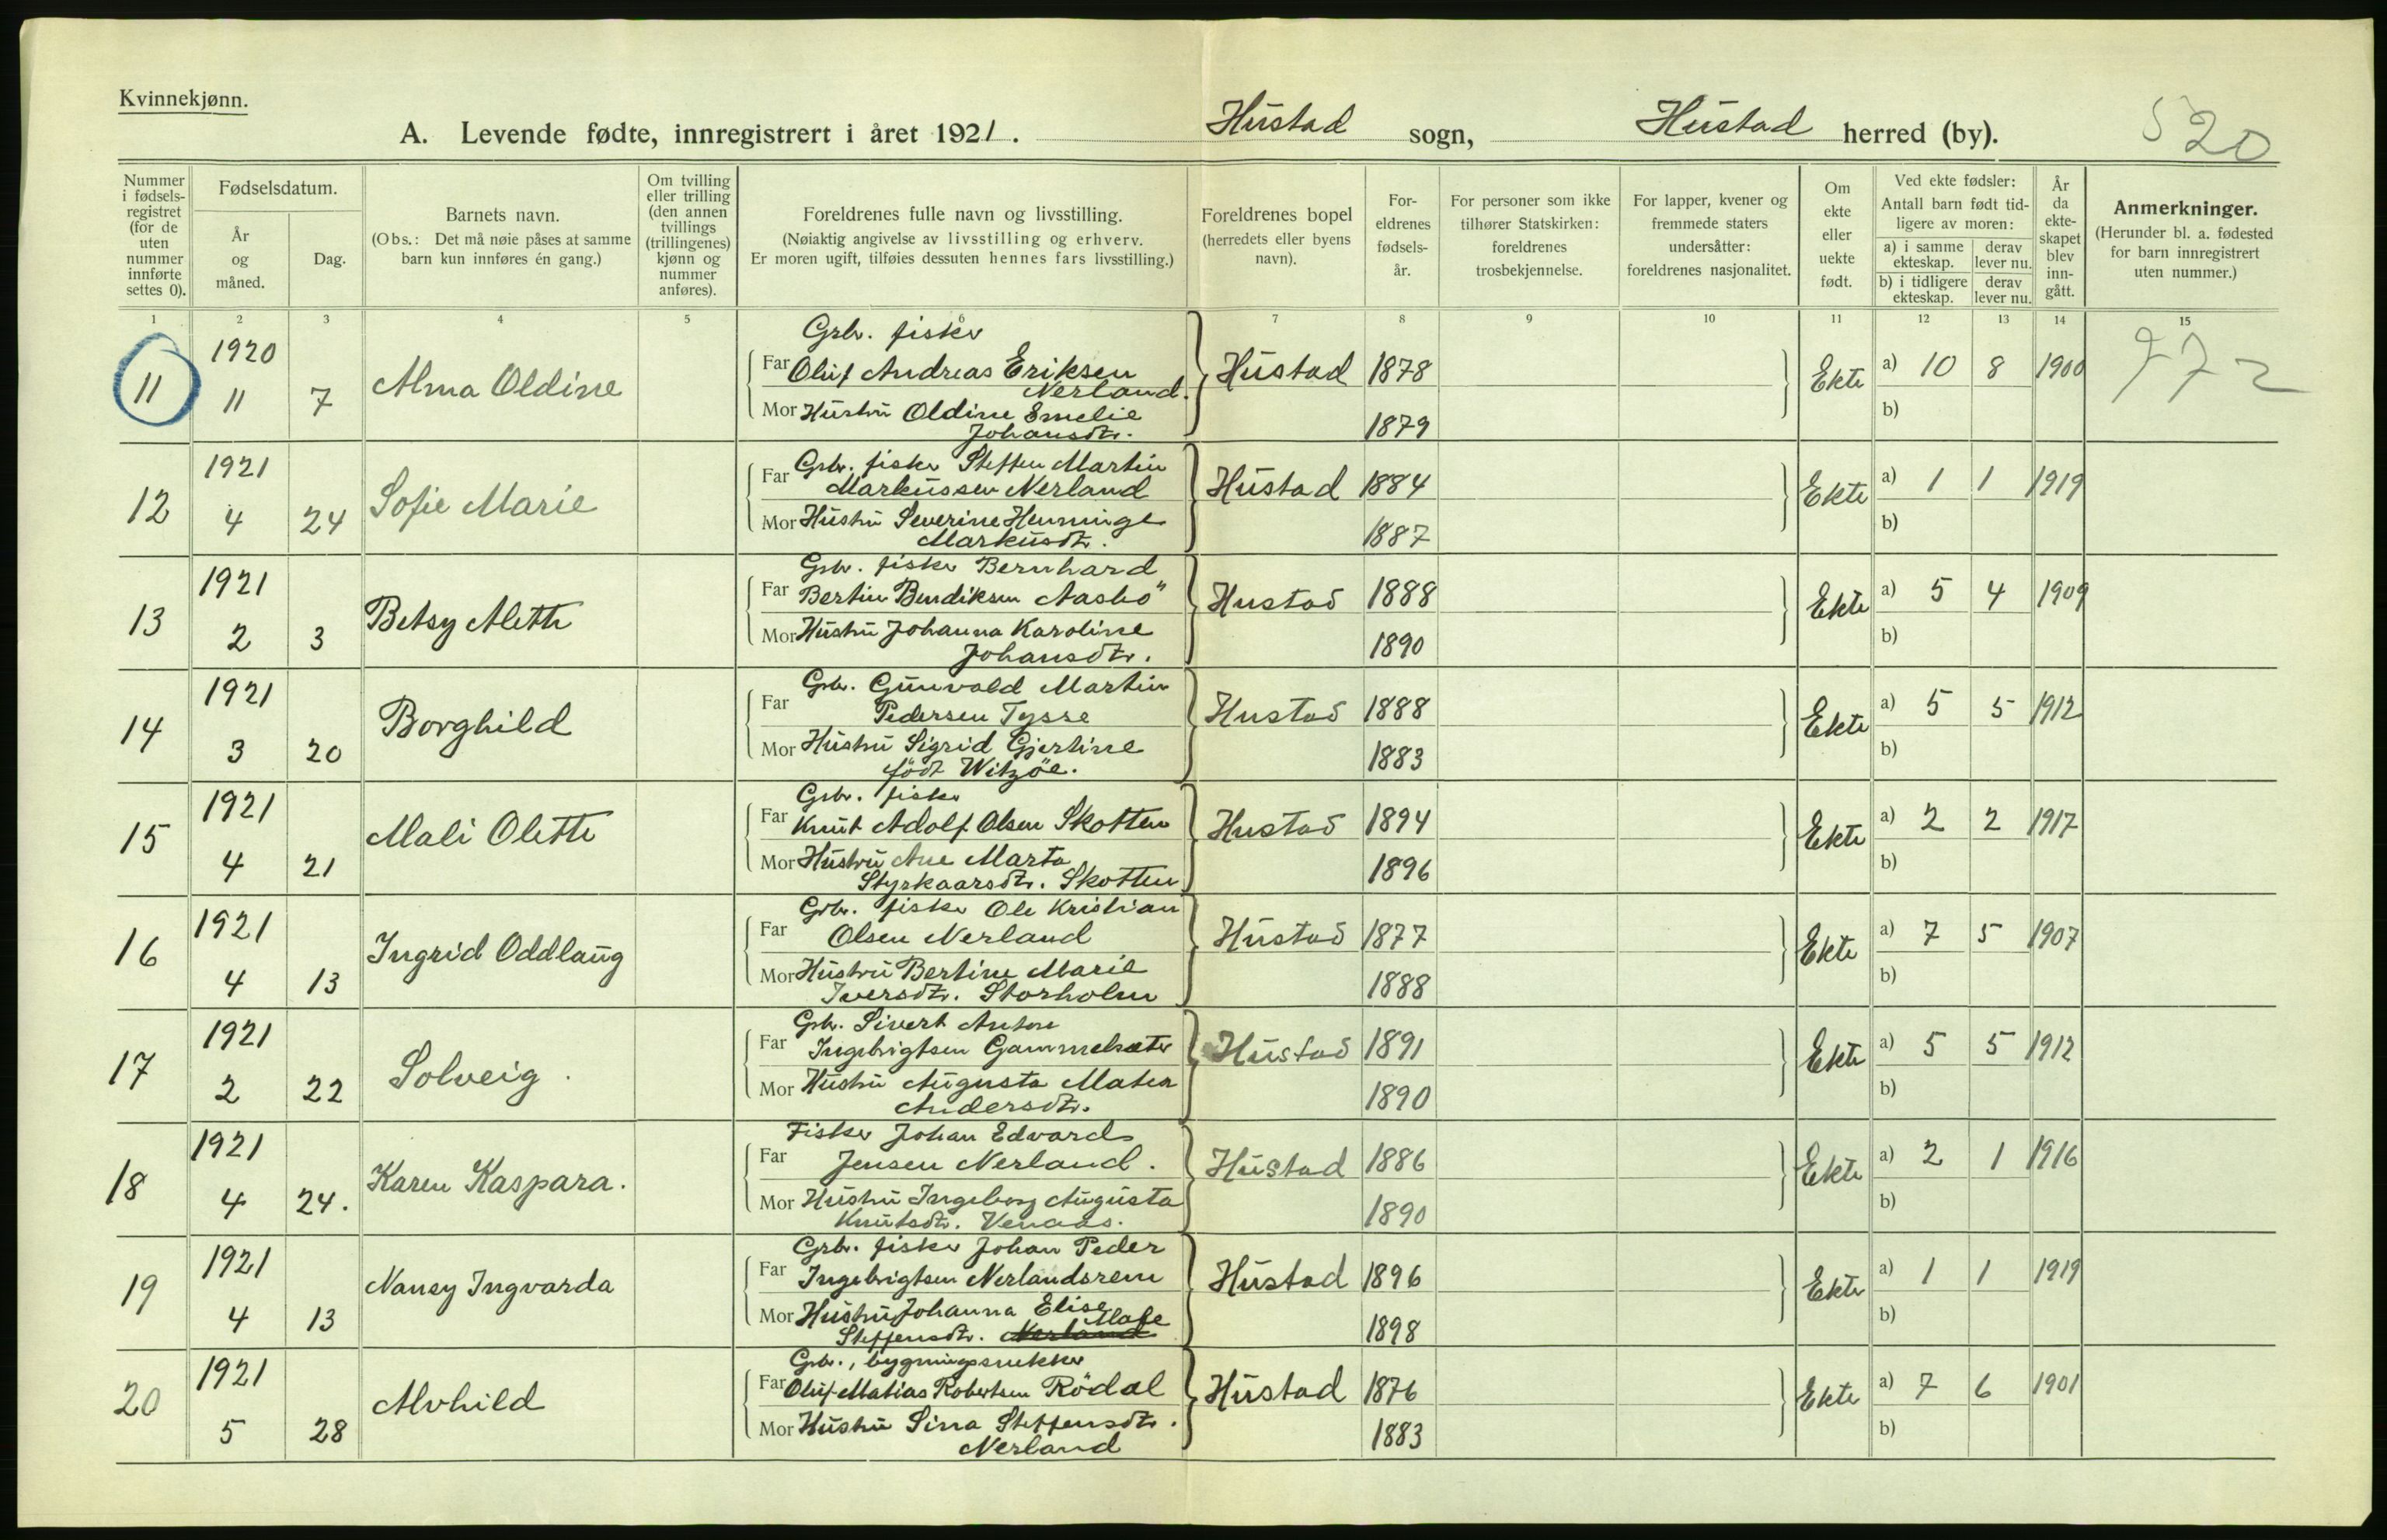 Kvinnekjønn.
A. Levende fødte, innregistrert i året 1921. Hustad sogn, Hustad herred (by).
520
Nummer i fødselsregistret (for de uten nummer innførte settes 0).
Fødselsdatum.
År og måned.
Dag.
Barnets navn.
(Obs.: Det må nøie påses at samme barn kun innføres én gang.)
Om tvilling eller trilling (den annen tvillings (trillingenes) kjønn og nummer anføres).
Foreldrenes fulle navn og livsstilling.
(Nøiaktig angivelse av livsstilling og erhverv.
Er moren ugift, tilføies dessuten hennes fars livsstilling.)
Foreldrenes bopel (herredets eller byens navn).
Foreldrenes fødselsår.
For personer som ikke tilhører Statskirken: foreldrenes trosbekjennelse.
For lapper, kvener og fremmede staters undersåtter: foreldrenes nasjonalitet.
Om ekte eller uekte født.
Ved ekte fødsler: Antall barn født tidligere av moren:
a) i samme ekteskap. derav lever nu.
b) i tidligere ekteskap. derav lever nu.
År da ekteskapet blev inngått.
Anmerkninger.
(Herunder bl. a. fødested for barn innregistrert uten nummer.)
1 2 3 4 5 6 7 8 9 10 11 12 13 14 15
11 1920 11 7 Alma Oldine
Grbr. fisker
Far Oluf Andreas Eriksen
Nerland.
Mor Hustru Oldine Emelie
Johansdtr.
Hustad 1878 1879 Ekte a) 10 8 1900 b)
772
12 1921 4 24 Sofie Marie
Grbr. fisker Steffen Martin
Far Markussen Nerland
Mor Hustru Severine Henninge
Markusdtr.
Hustad 1884 1887 Ekte a) 1 1 1919 b)
13 1921 2 3 Betsy Alette
Grbr. fisker Bernhard
Far Bertin Bendiksen Aasbö
Mor Hustru Johanna Karoline
Johansdtr.
Hustad 1888 1890 Ekte a) 5 4 1909 b)
14 1921 3 20 Borghild
Grbr. Gunvald Martin
Far Pedersen Tysse
Mor Hustru Sigrid Gjertine
född Witzöe.
Hustad 1888 1883 Ekte a) 5 5 1912 b)
15 1921 4 21 Mali Olette
Grbr. fisker
Far Knut Adolf Olsen Skotten
Mor Hustru Ane Marta
Styrkaarsdtr. Skotten
Hustad 1894 1896 Ekte a) 2 2 1917 b)
16 1921 4 13 Ingrid Oddlaug
Grbr. fisker Ole Kristian
Far Olsen Nerland
Mor Hustru Bertine Marie
Iversdtr. Storholm
Hustad 1877 1888 Ekte a) 7 5 1907 b)
17 1921 2 22 Solveig.
Grbr. Sivert Anton
Far Ingebrigtsen Gammelsæter
Mor Hustru Augusta Matea
Andersdtr.
Hustad 1891 1890 Ekte a) 5 5 1912 b)
18 1921 4 24. Karen Kaspara.
Fisker Johan Edvard
Far Jensen Nerland.
Mor Hustru Ingeborg Augusta
Knutsdtr. Venaas.
Hustad 1886 1890 Ekte a) 2 1 1916 b)
19 1921 4 13 Nancy Ingvarda
Grbr. fisker Johan Peder
Far Ingebrigtsen Nerlandsrem
Mor Hustru Johanna Elise
Steffensdtr. Nerland
Hustad 1896 1898 Ekte a) 1 1 1919 b)
20 1921 5 28 Alvhild
Grbr., bygningssnekker
Far Oluf Matias Robertsen Rödal
Mor Hustru Sina Steffensdtr.
Nerland
Hustad 1876 1883 Ekte a) 7 6 1901 b)